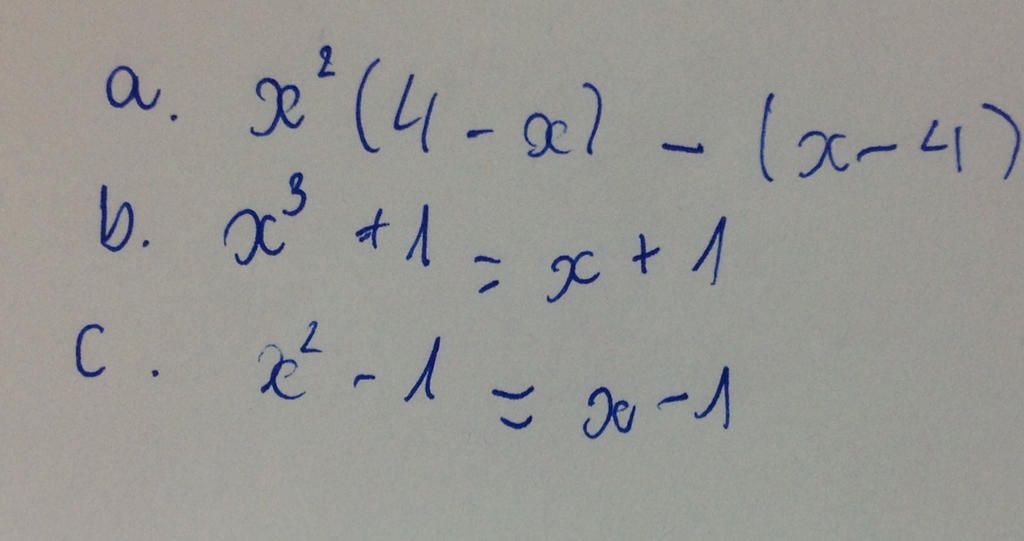 a. x²(4 - x) - (x - 4)
b. x³ + 1 = x + 1
c. x² - 1 = x - 1